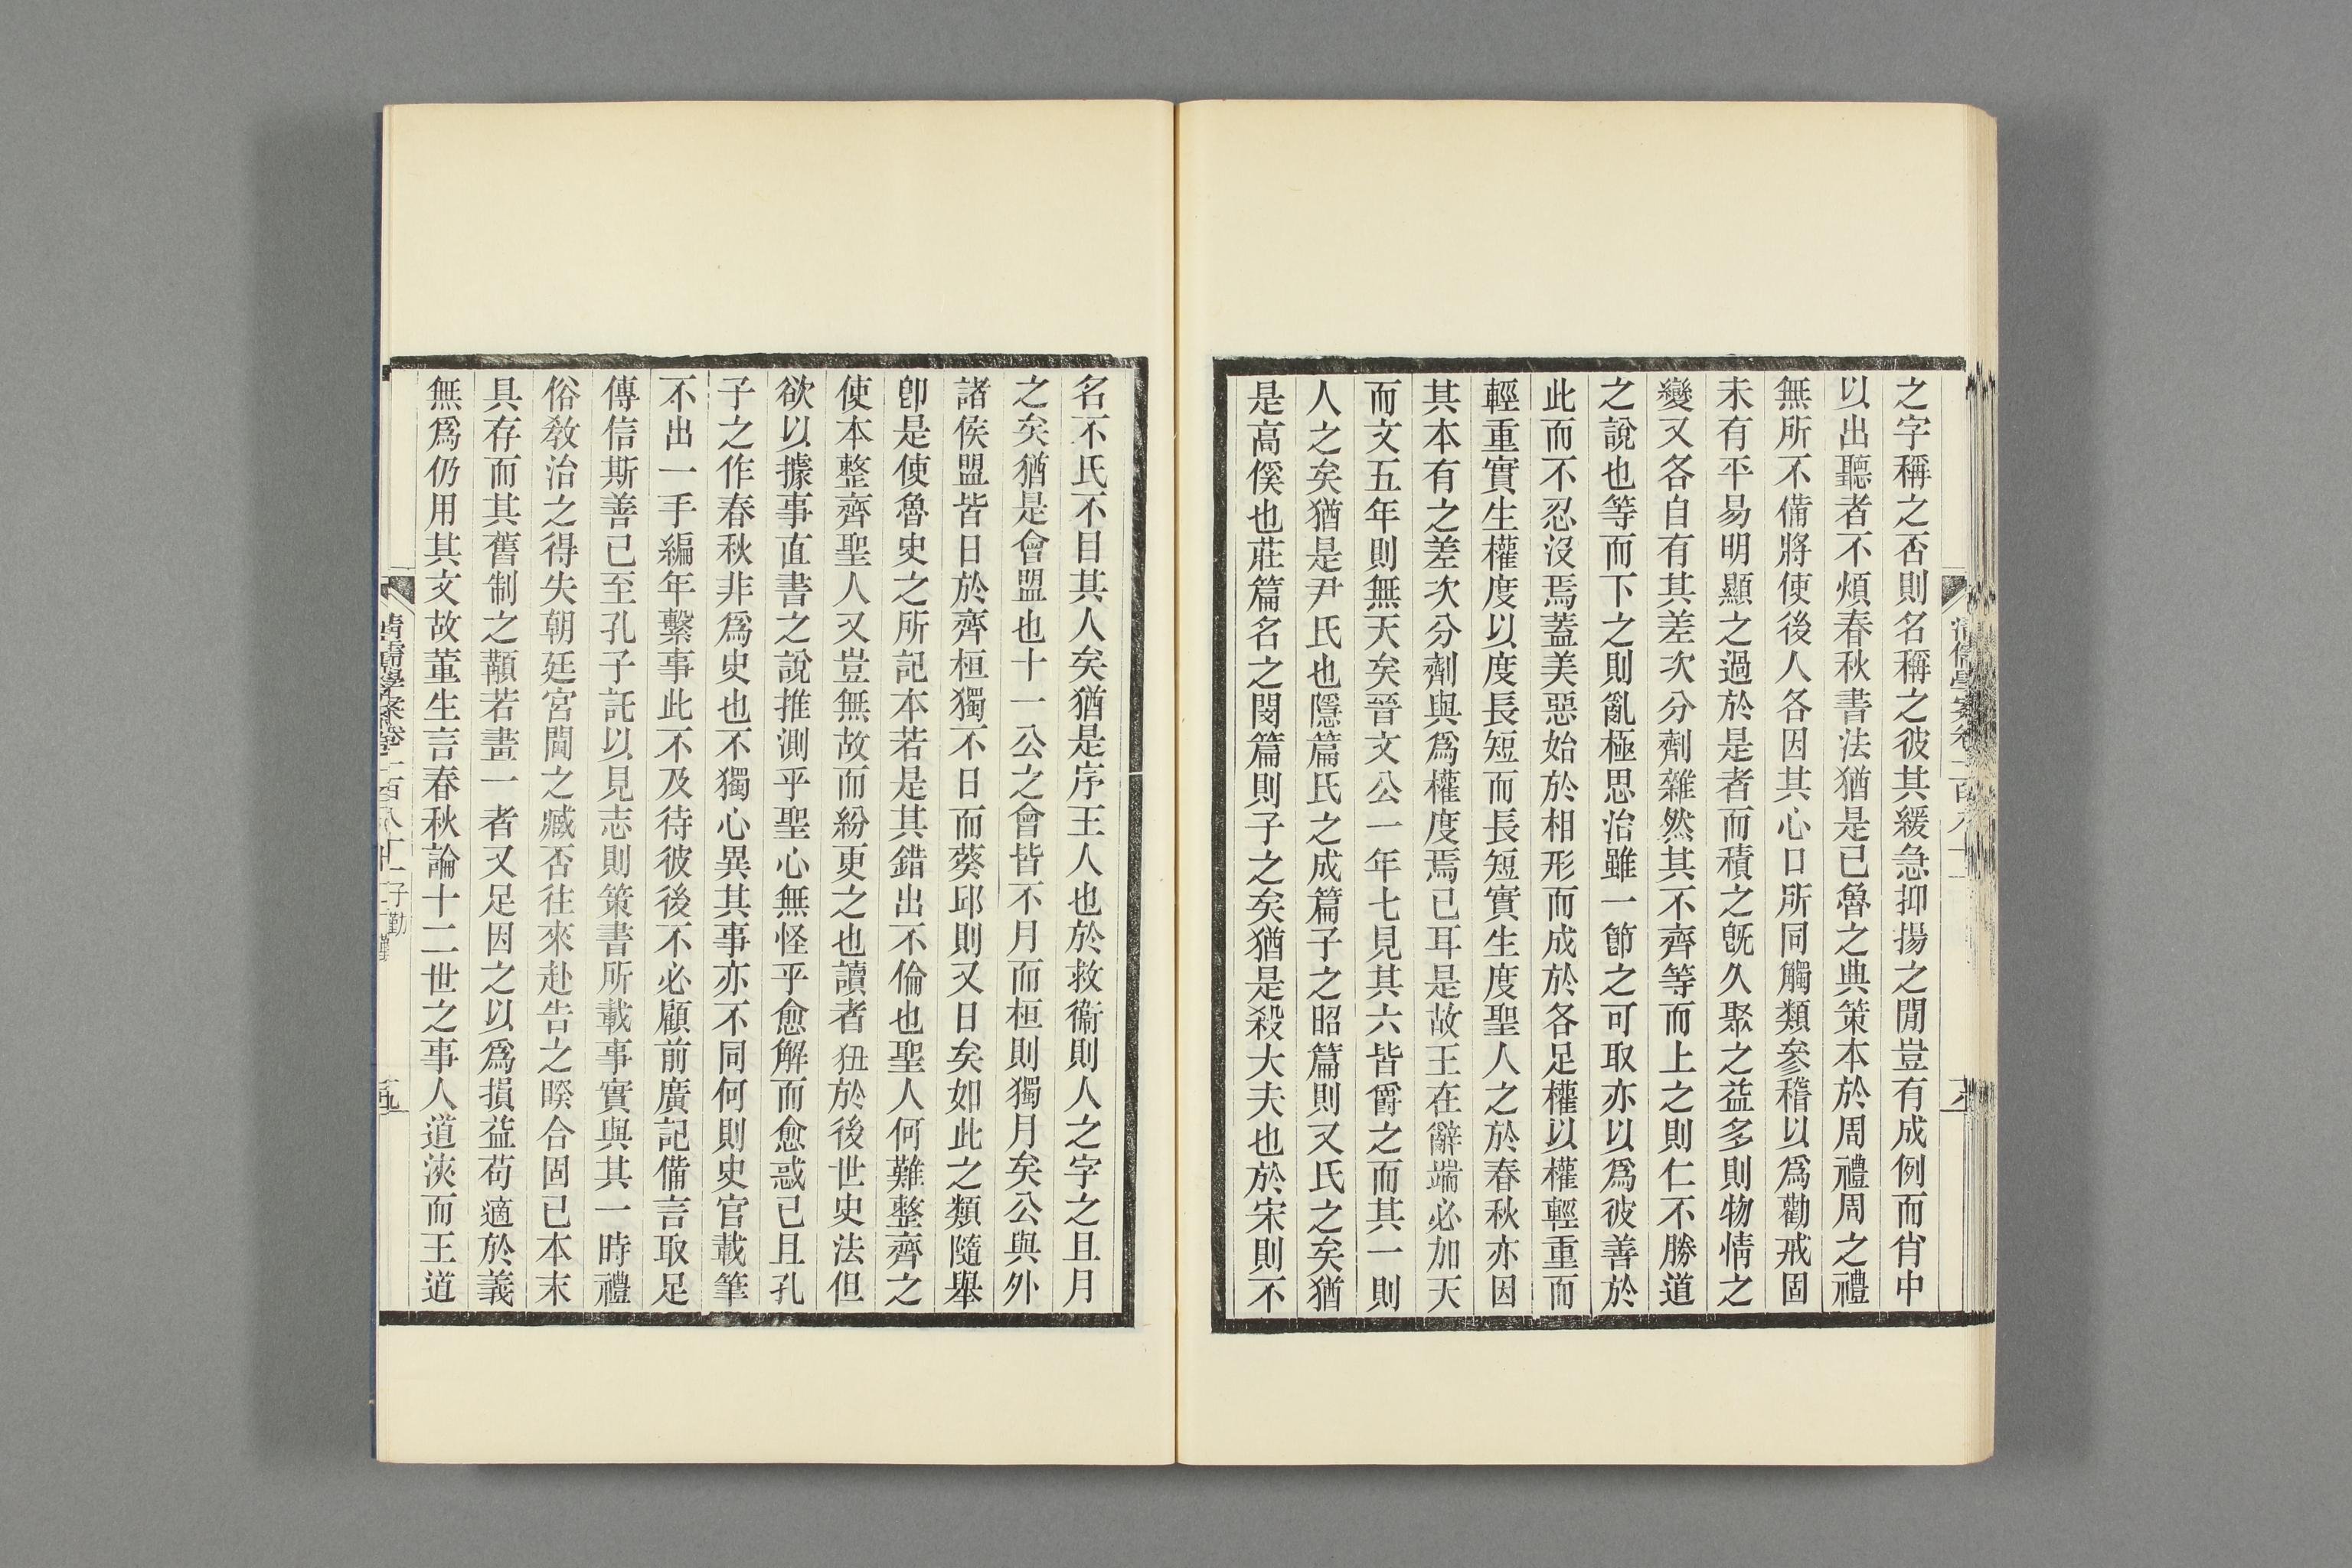 之字稱之否則名稱之彼其緩急抑揚之閒豈有成例而肖中
以出聽者不煩春秋書法猶是已魯之典策本於周禮周之禮
無所不備將使後人各因其心口所同觸類參稽以爲勸戒固
未有平易明顯之過於是者而積之旣久聚之益多則物情之
變又各自有其差次分劑雜然其不齊等而上之則仁不勝道
之說也等而下之則亂極思治雖一節之可取亦以爲彼善於
此而不忍沒焉蓋美惡始於相形而成於各足權以權輕重而
輕重實生權度以度長短而長短實生度聖人之於春秋亦因
其本有之差次分劑與爲權度焉已耳是故王在辭端必加天
而文五年則無天矣晉文公一年七見其六皆爵之而其一則
人之矣猶是尹氏也隱篇氏之成篇子之昭篇則又氏之矣猶
是高傒也莊篇名之閔篇則子之矣猶是殺大夫也於宋則不
名不氏不目其人矣猶是序王人也於救衞則人之字之且月
之矣猶是會盟也十一公之會皆不月而桓則獨月矣公與外
諸侯盟皆日於齊桓獨不日而葵邱則又日矣如此之類隨舉
卽是使魯史之所記本若是其錯出不倫也聖人何難整齊之
使本整齊聖人又豈無故而紛更之也讀者狃於後世史法但
欲以據事直書之說推測乎聖心無怪乎愈解而愈惑已且孔
子之作春秋非爲史也不獨心異其事亦不同何則史官載筆
不出一手編年繫事此不及待彼後不必顧前廣記備言取足
傳信斯善已至孔子託以見志則策書所載事實與其一時禮
俗敎治之得失朝廷宮閫之臧否往來赴告之睽合固已本末
具存而其舊制之顜若畫一者又足因之以爲損益苟適於義
無爲仍用其文故董生言春秋論十二世之事人道浹而王道
清儒學案卷一百八十一 子勤